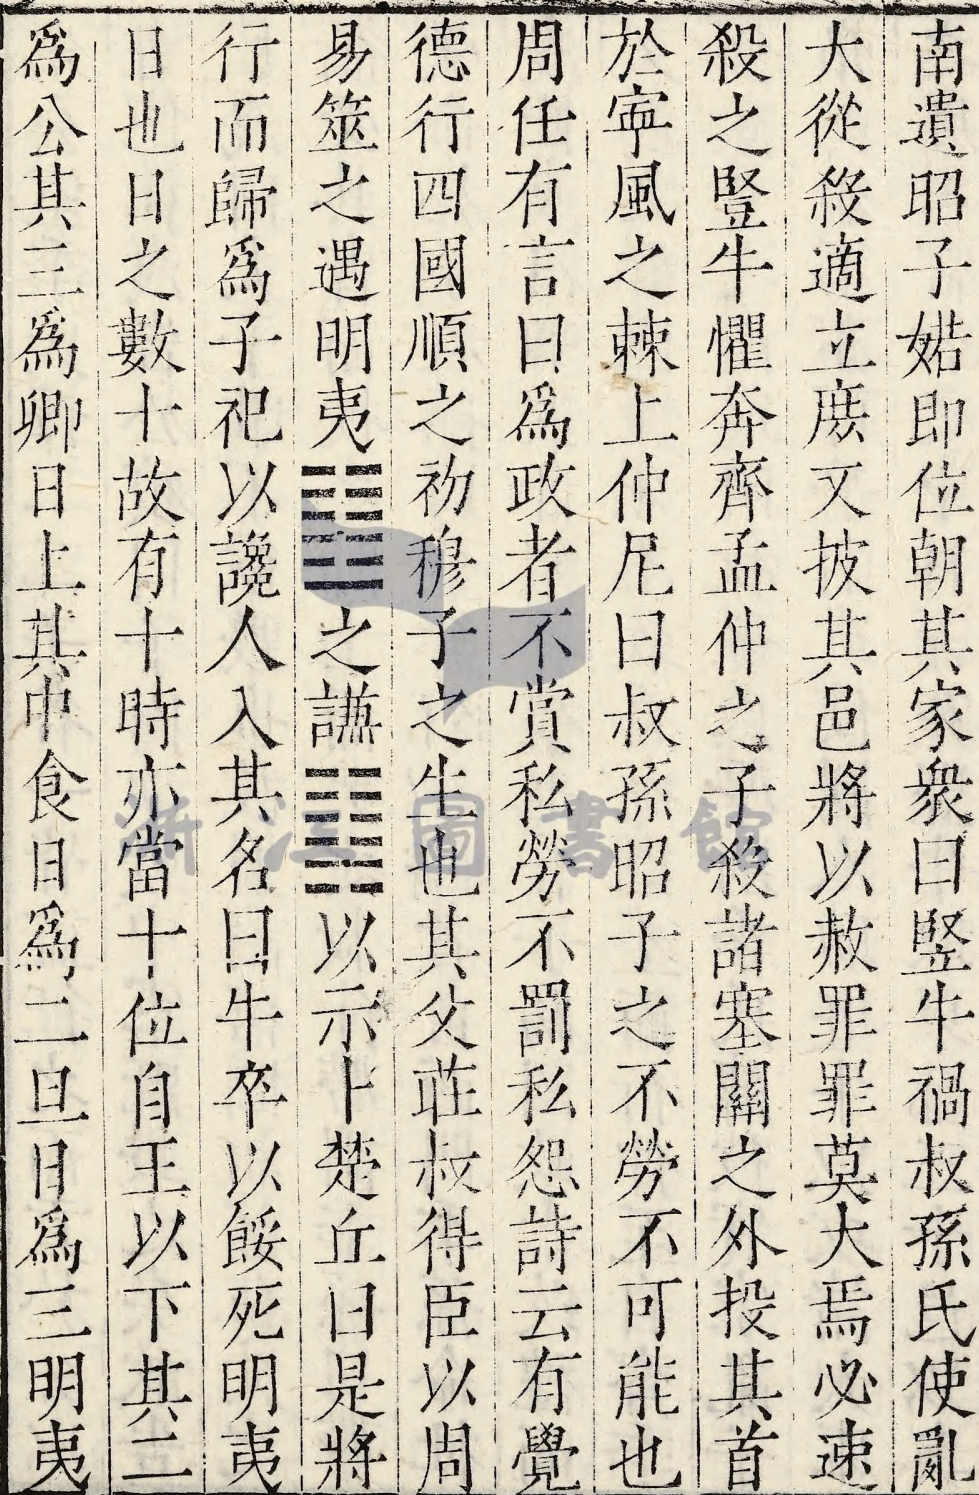 南遺昭子婼即位朝其家衆曰竪牛禍叔孫氏使亂
大從殺適立庶又披其邑將以赦罪罪莫大焉必速
殺之豎牛懼奔齊孟仲之子殺諸塞關之外投其首
於寧風之棘上仲尼曰叔孫昭子之不勞不可能也
周任有言曰爲政者不賞私勞不罰私怨詩云有覺
德行四國順之初穆子之生也其父莊叔得臣以周
易筮之遇明夷䷣之謙䷎以示卜楚丘曰是將
行而歸爲子祀以讒人入其名曰牛卒以餒死明夷
日也日之數十故有十時亦當十位自王以下其二
爲公其三爲卿日上其中食日爲二旦日爲三明夷
浙江圖書館